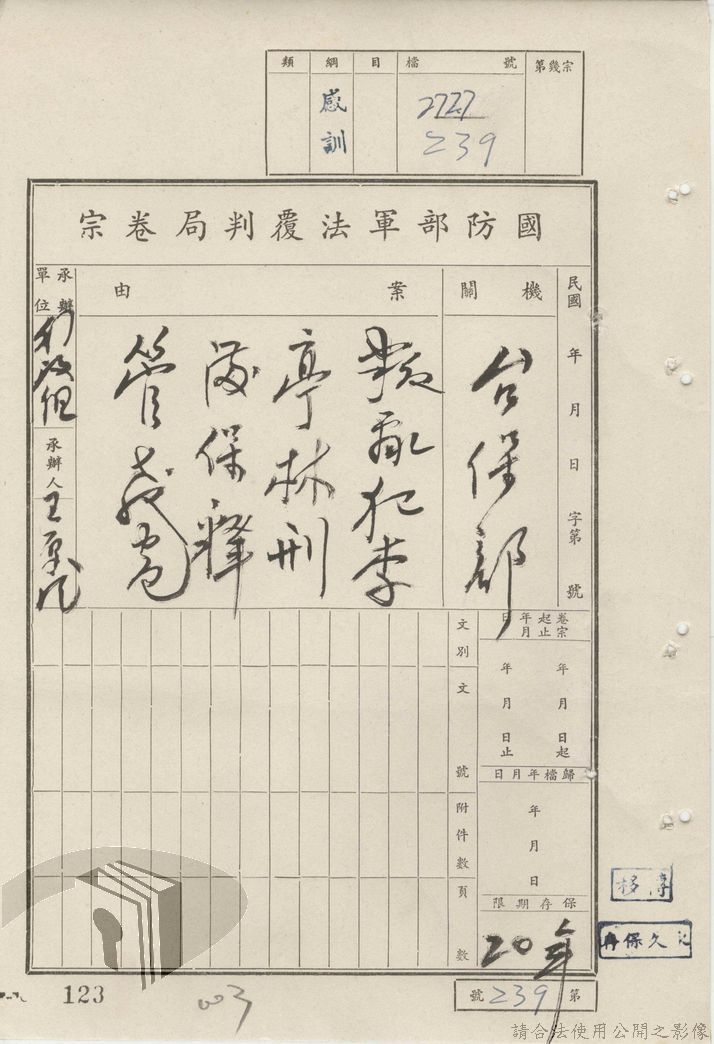 類 綱 目 檔號 第幾宗
感訓
2727
239
國防部軍法覆判局卷宗
民國 年 月 日 字第 號
機關
台保部
案由
叛亂犯李
亭林刑
滿保釋
管
承辦單位
承辦人
卷宗起止年月日
年 月 日起
年 月 日止
歸檔年月日
年 月 日
保存期限
20年
文別
文號
附件數
頁數
第 239 號
123
003
請合法使用公開之影像